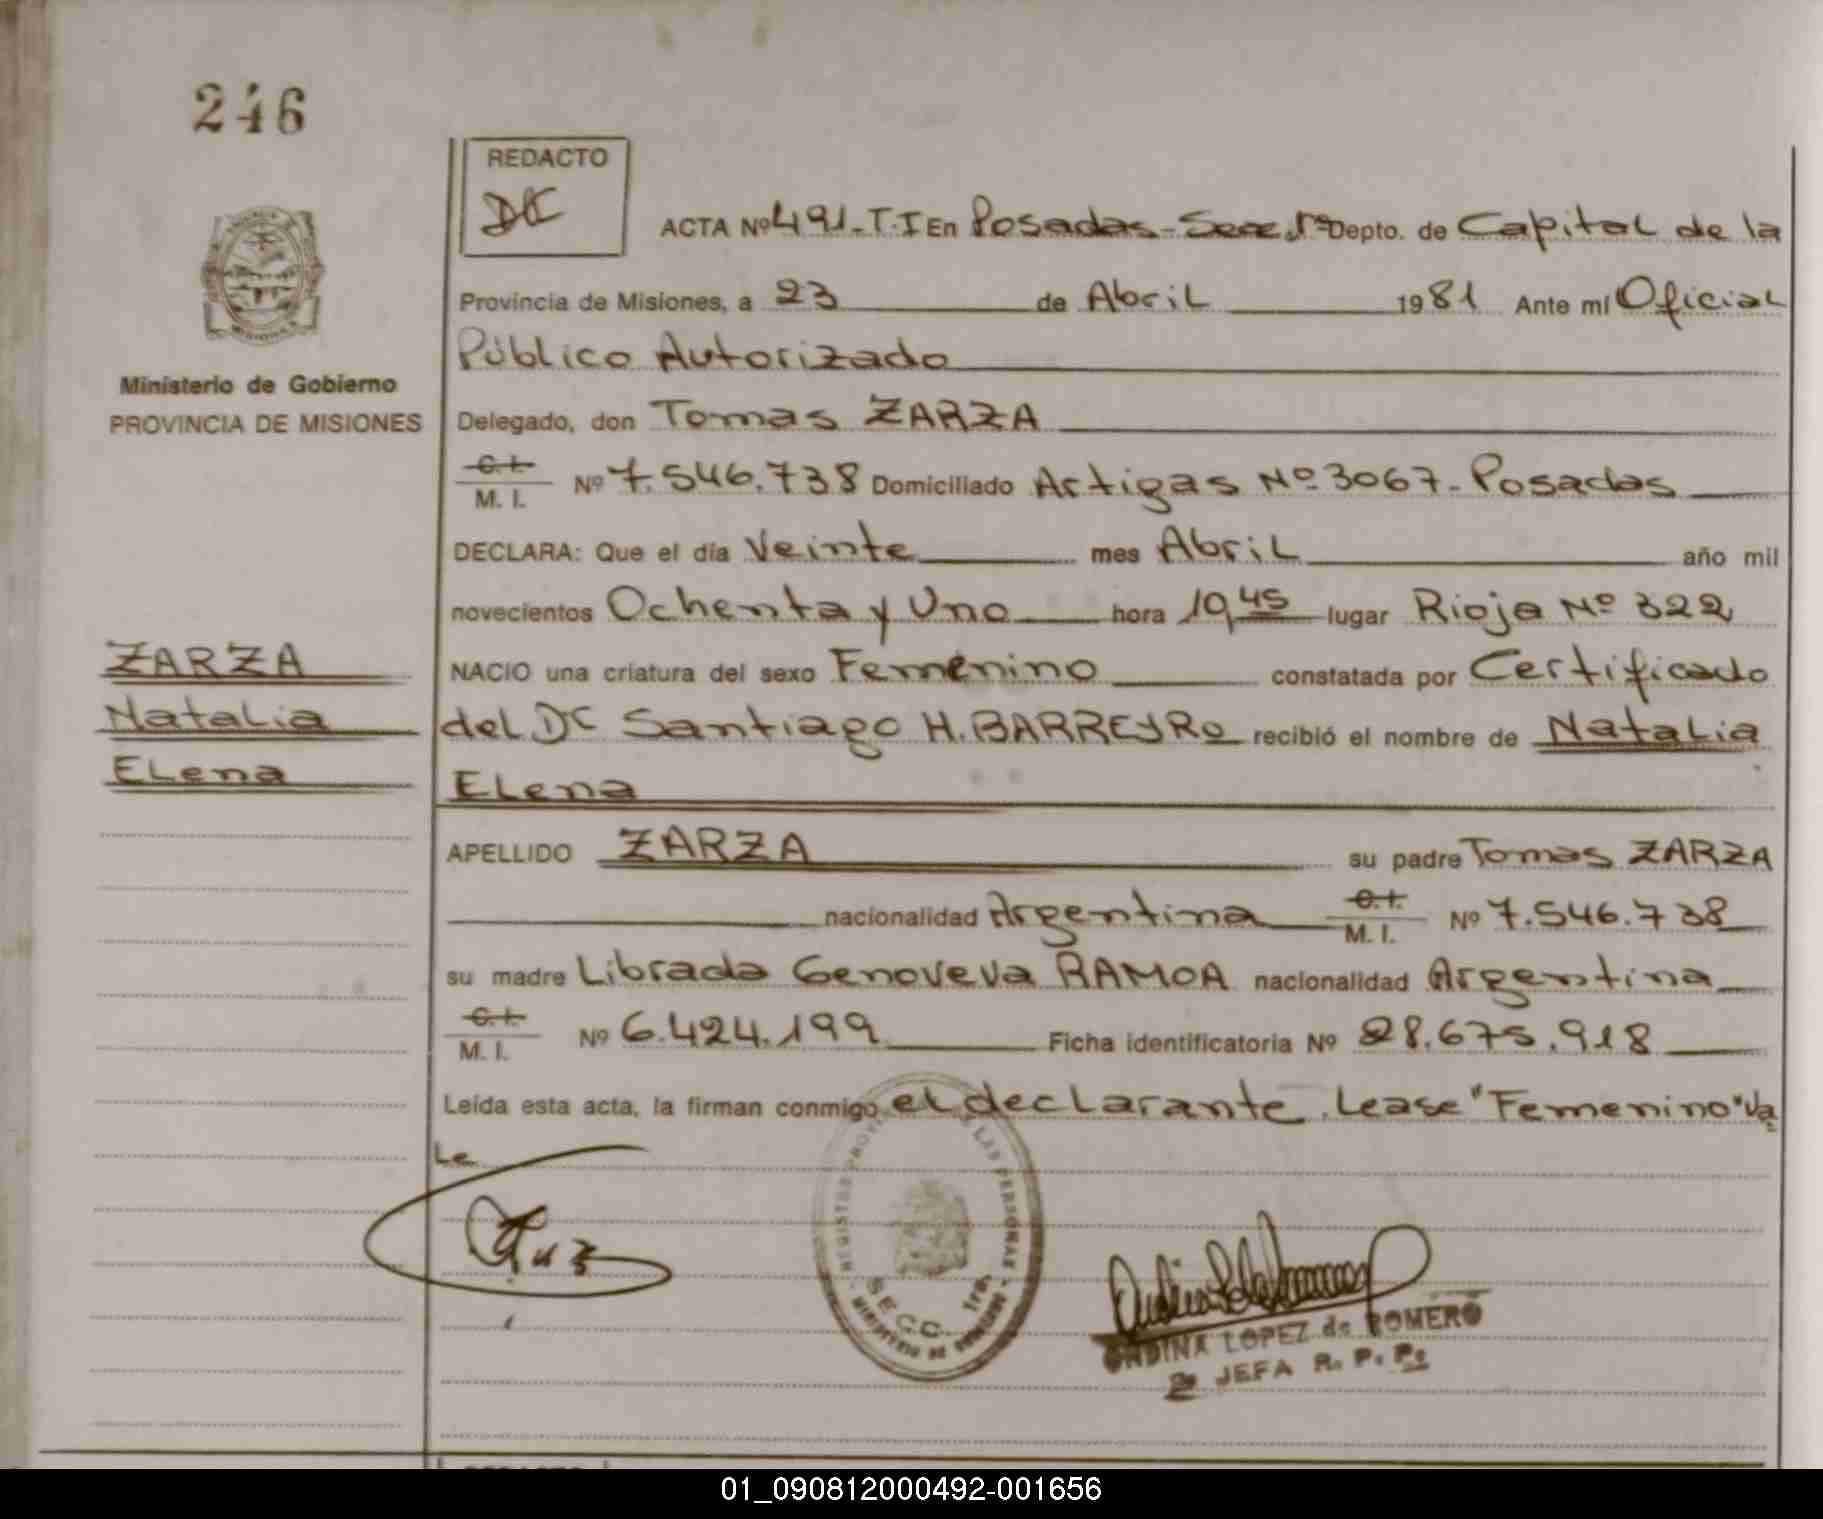 246
REDACTO
DC
ACTA Nº 491-T.I En Posadas-Secc.1ª Depto. de Capital de la
Provincia de Misiones, a 23 de Abril 1981 Ante mí Oficial
Público Autorizado
Ministerio de Gobierno
PROVINCIA DE MISIONES
Delegado, don Tomas ZARZA
C.I.
M. I. Nº 7.546.738 Domiciliado Artigas Nº 3067- Posadas
DECLARA: Que el día Veinte mes Abril año mil
novecientos Ochenta y Uno hora 19,45 lugar Rioja Nº 322
ZARZA
Natalia
Elena
NACIO una criatura del sexo Femenino constatada por Certificado
del Dr Santiago H. BARREYRO recibió el nombre de Natalia
Elena
APELLIDO ZARZA su padre Tomas ZARZA
nacionalidad Argentina C.I. M. I. Nº 7.546.738
su madre Librada Genoveva RAMOA nacionalidad Argentina
C.I.
M. I. Nº 6.424.199 Ficha identificatoria Nº 28.675.918
Leída esta acta, la firman conmigo el declarante. Lease "Femenino" Va
Le
REGISTRO PROV. DE LAS PERSONAS
SECC. 1ra.
MINISTERIO DE GOBIERNO
ONDINA LOPEZ de ROMERO
2ª JEFA R. P. P.
01_090812000492-001656